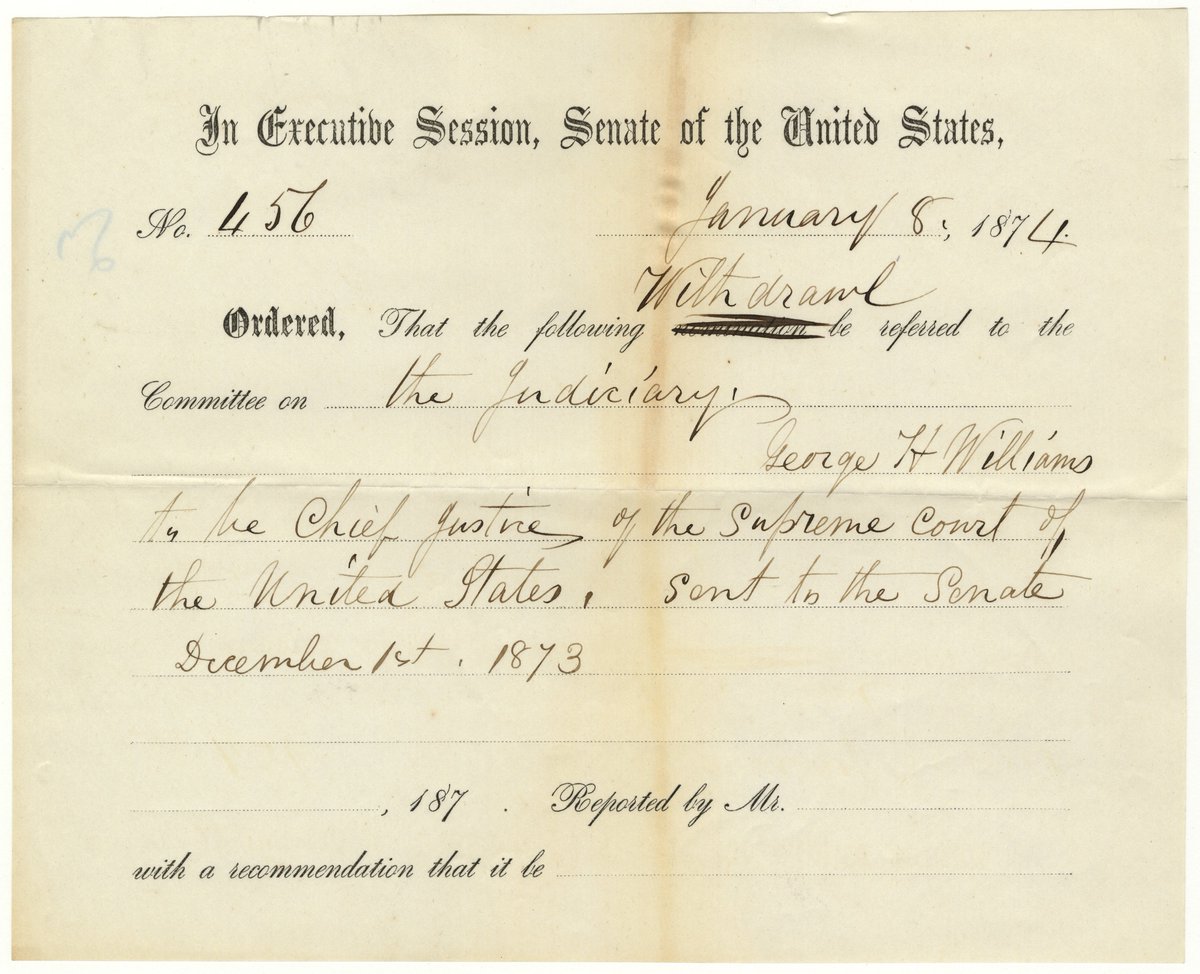 In Executive Session, Senate of the United States,
No. 456 January 8, 1874.
Withdrawl
Ordered, That the following nomination be referred to the
Committee on the Judiciary.
George H Williams
to be Chief Justice of the Supreme Court of
the United States. Sent to the Senate
December 1st. 1873
, 187 . Reported by Mr.
with a recommendation that it be